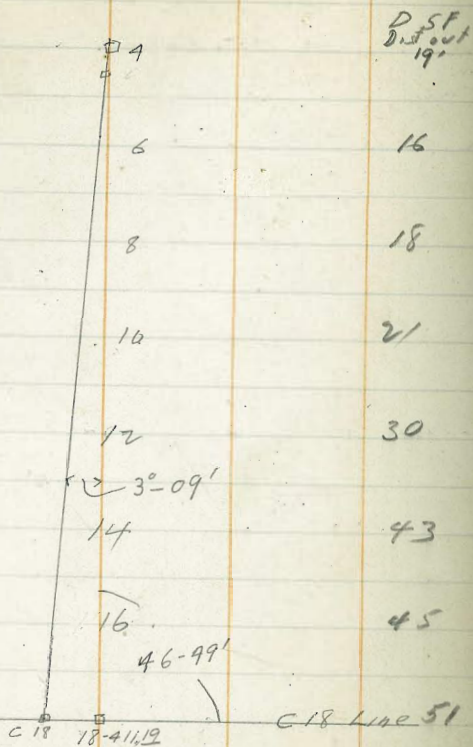 D SF
Dist out
4 19'
6 16
8 18
10 21
12 30
3°-09'
14 43
16 45
46-49'
C 18 Line 51
C 18 18-411,19